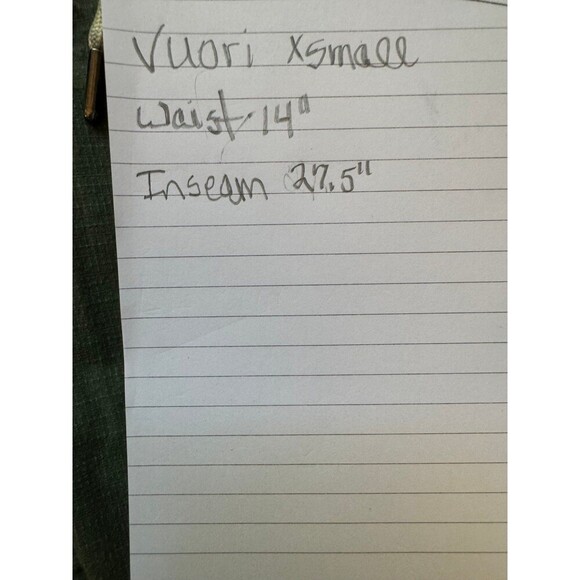 Vuori xsmall
Waist-14"
Inseam 27.5"